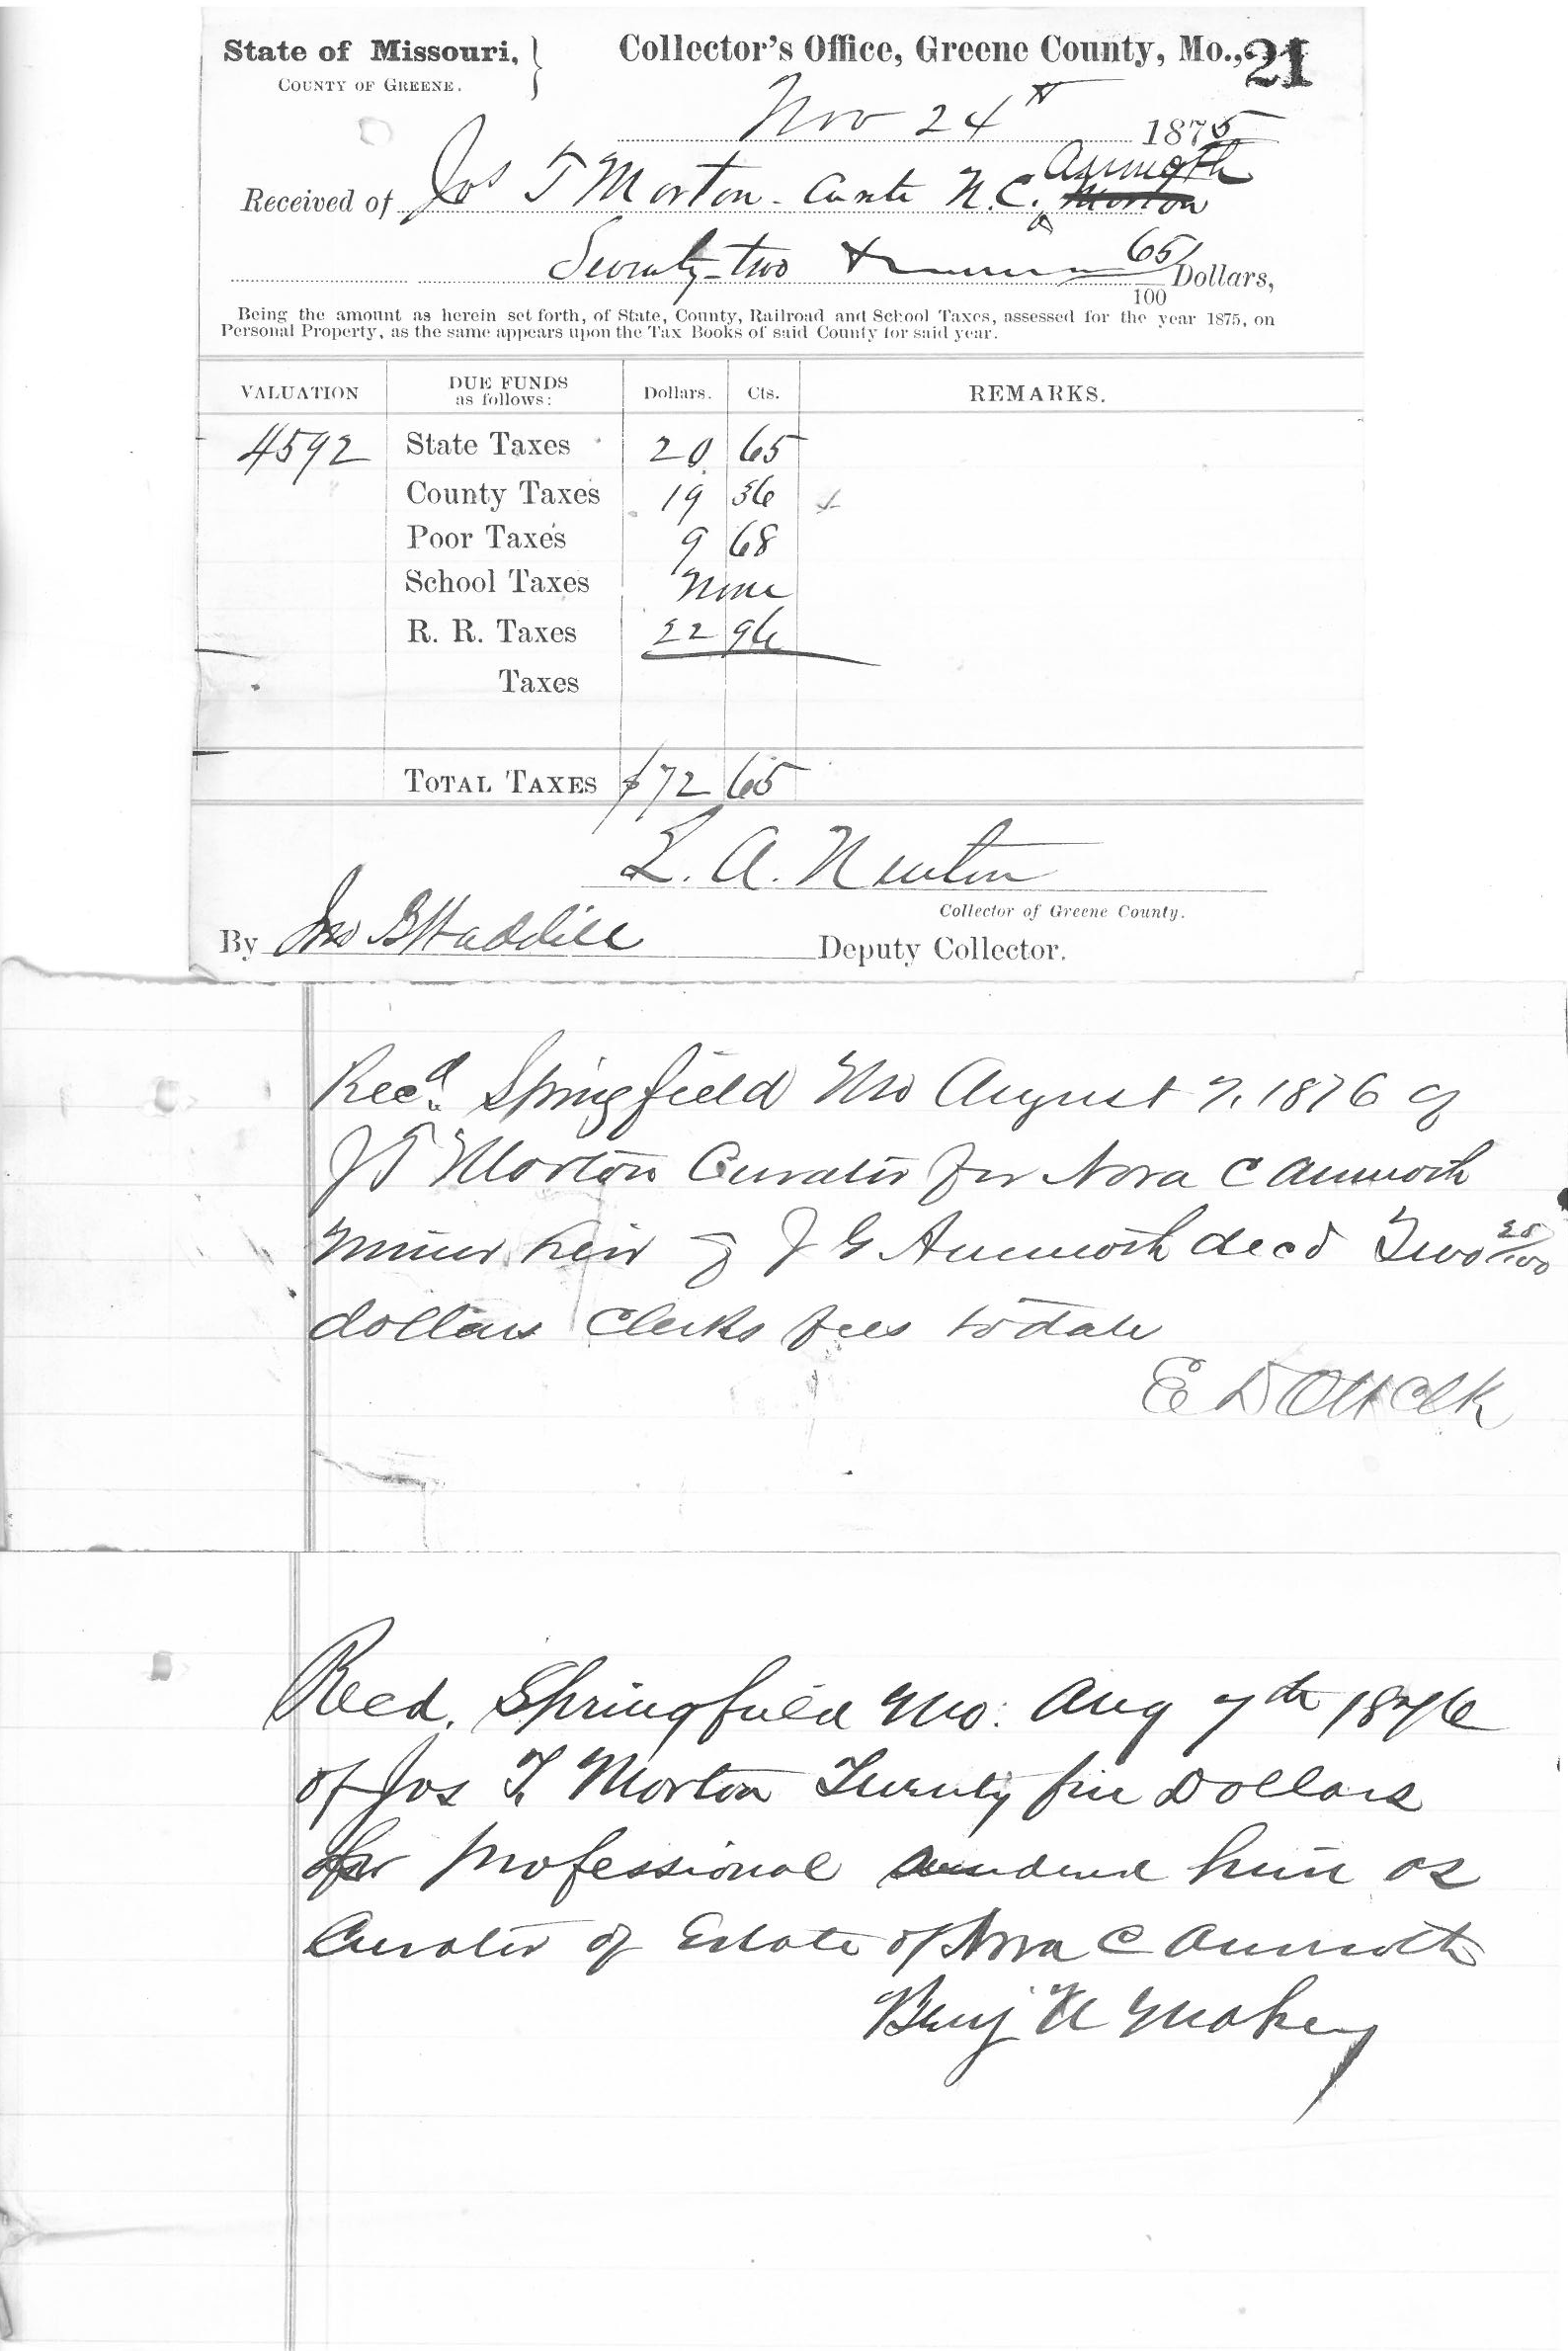 State of Missouri, } Collector's Office, Greene County, Mo., 21
COUNTY OF GREENE.
Nov 24th 1875
Received of Jos T Morton - Curatr N.C. Aumoth Morton
Seventy-two 65/100 Dollars,
Being the amount as herein set forth, of State, County, Railroad and School Taxes, assessed for the year 1875, on
Personal Property, as the same appears upon the Tax Books of said County for said year.
VALUATION DUE FUNDS as follows: Dollars. Cts. REMARKS.
4592 State Taxes 20 65
County Taxes 19 36
Poor Taxes 9 68
School Taxes None
R. R. Taxes 22 96
Taxes
TOTAL TAXES $72 65
L. A. Newton
Collector of Greene County.
By Jno B Waddill Deputy Collector.
Recd. Springfield Mo August 7, 1876 of
J T Morton Curator for Nora C Aumoth
minor heir of J G Aumoth decd Two 25/100
dollars Clerks fees to date
E D Ott Clk
Recd. Springfield Mo. Aug 7th 1876
of Jos T. Morton Twenty five Dollars
for professional rendered him as
Curator of Estate of Nora C Aumoth
Benj U